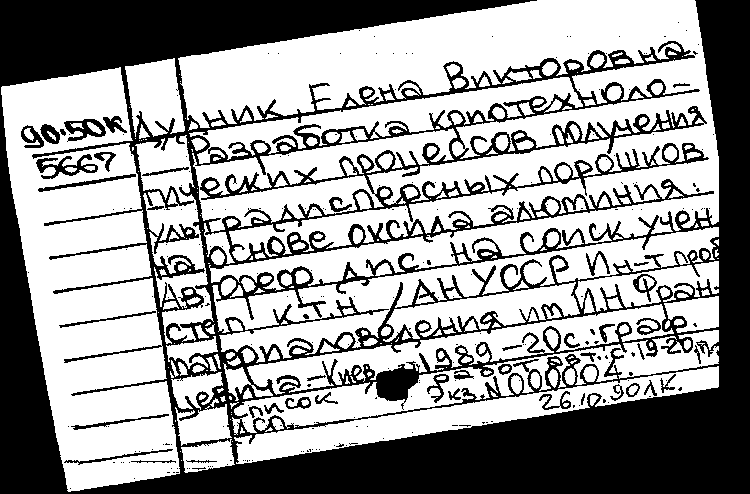 90-50к Дудник, Елена Викторовна.
5667 Разработка криотехноло-
гических процессов получения
ультрадисперсных порошков
на основе оксида алюминия:
Автореф. дис. на соиск. учен.
степ. к.т.н. / АН УССР, Ин-т проб
материаловедения им. И.Н. Фран-
цевича.-Киев 1989.-20с.:граф.
Список работ авт.: с. 19-20
ДСП. Экз. N 000004.
26.10.90 ЛК.